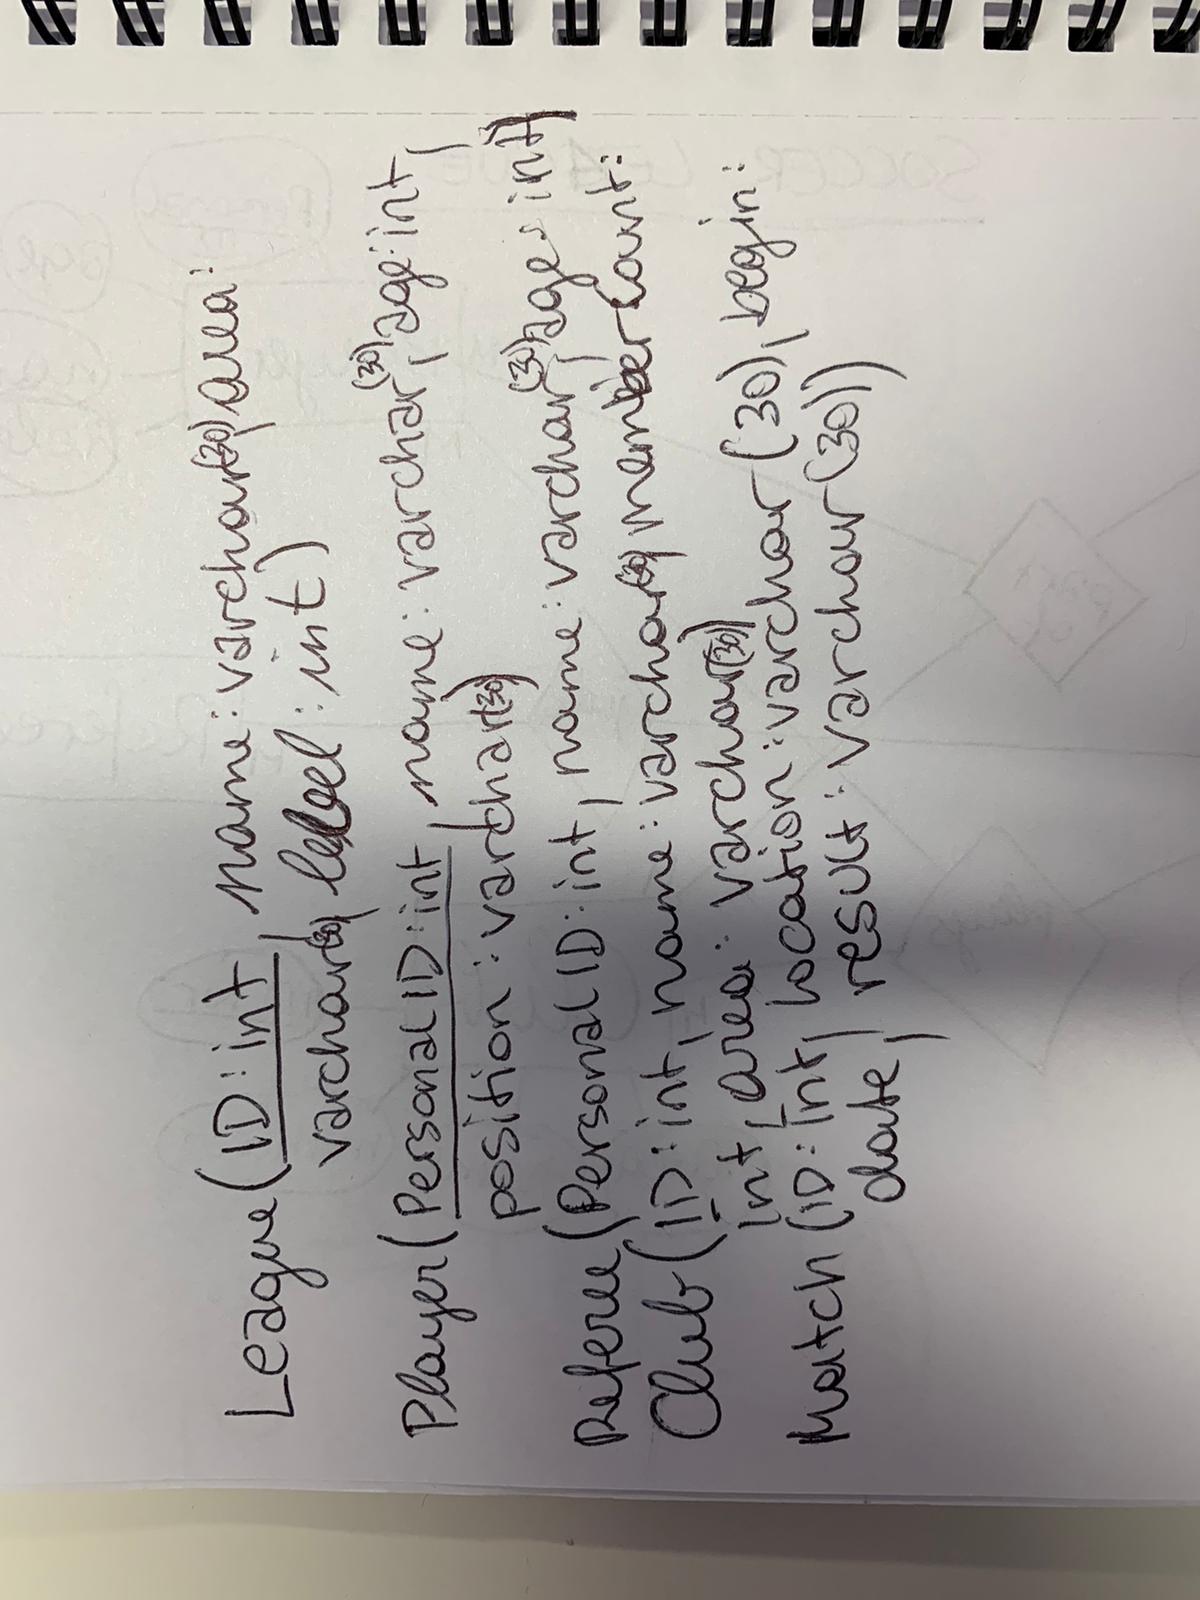 League(ID:int, name:varchar(30), area:
varchar(30), level:int)
Player(Personal ID:int, name:varchar(30), age:int,
position:varchar(30))
Referee(Personal ID:int, name:varchar(30), age:int)
Club(ID:int, name:varchar(30), member count:
int, area:varchar(30))
Match(ID:int, location:varchar(30), begin:
date, result:varchar(30))